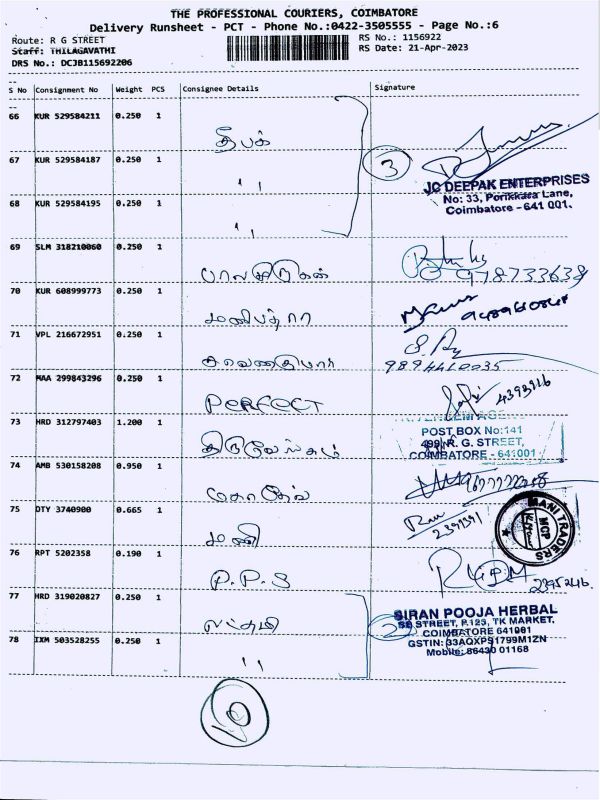 THE PROFESSIONAL COURIERS, COIMBATORE
Delivery Runsheet - PCT - Phone No.:0422-3505555 - Page No.:6
Route: R G STREET
RS No.: 1156922
Staff: THILAGAVATHI
RS Date: 21-Apr-2023
DRS No.: DCJB115692206
S No Consignment No Weight PCS Consignee Details Signature
66 KUR 529584211 0.250 1
தீபக்
67 KUR 529584187 0.250 1
3
" 
JC DEEPAK ENTERPRISES
No: 33, Porikkara Lane,
Coimbatore - 641 001.
68 KUR 529584195 0.250 1
"
69 SLM 318210060 0.250 1
பாலமுருகன்
70 KUR 608999773 0.250 1
71 VPL 216672951 0.250 1
72 MAA 299843296 0.250 1
PERFECT
4393916
73 HRD 312797403 1.200 1
POST BOX No:141
499, R. G. STREET,
COIMBATORE - 641001
74 AMB 530158208 0.950 1
மகாதேவ்
75 DTY 3740900 0.665 1
மணி
MANI TRADERS
76 RPT 5202358 0.190 1
P.P.S
77 HRD 319020827 0.250 1
லட்சுமி
2
SIRAN POOJA HERBAL
STREET, P.123, TK MARKET.
COIMBATORE 641001
Mobile: 86430 01168
78 IXM 503528255 0.250 1
"